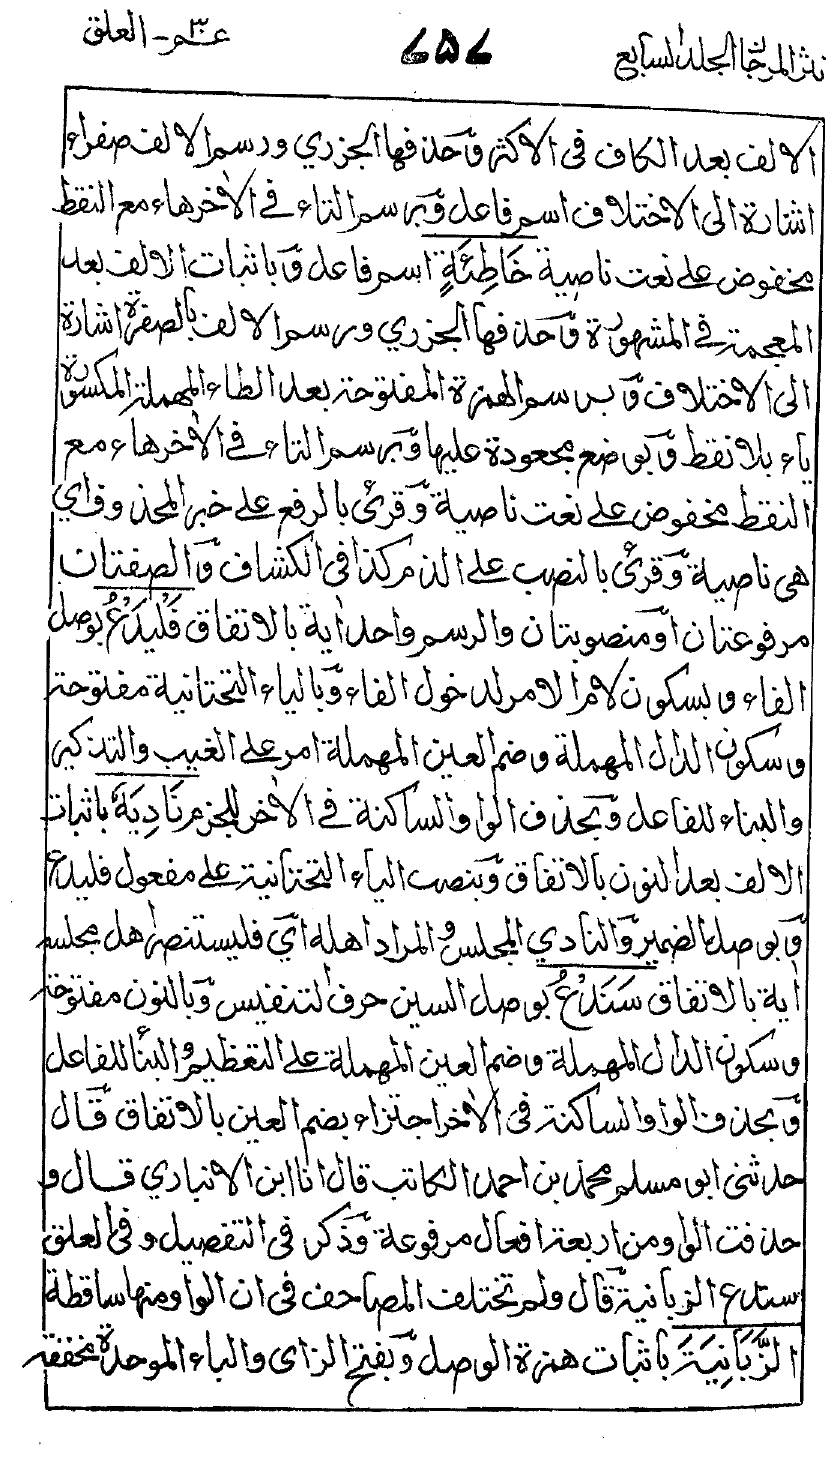 نثر المرجان الجلد السابع
٧٥٧
عم٣ - العلق
الالف بعد الكاف فى الاكثر وحذفها الجزري ورسم الالف صفراء
اشارة الى الاختلاف اسم فاعل وبرسم التاء فى الاٰخر هاء مع النقط
مخفوض على نعت ناصية خَاطِئَةٍ اسم فاعل وباثبات الالف بعد
المعجمة فى المشهورة وحذفها الجزري ورسم الالف بالصفرة اشارة
الى الاختلاف وبرسم الهمزة المفتوحة بعد الطاء المهملة المكسورة
ياء بلا نقط وبوضع مجعودة عليها وبرسم التاء فى الاٰخر هاء مع
النقط مخفوض على نعت ناصية وقرئ بالرفع على خبر المحذوف اي
هى ناصية وقرئ بالنصب على الذم كذا فى الكشاف والصفتان
مرفوعتان او منصوبتان والرسم واحد اٰية بالاتفاق فَلْيَدْعُ بوصل
الفاء وبسكون لام الامر لدخول الفاء وبالياء التحتانية مفتوحة
وسكون الدال المهملة وضم العين المهملة امر على الغيب والتذكير
والبناء للفاعل وبحذف الواو الساكنة فى الاٰخر للجزم نَادِيَهٗ باثبات
الالف بعد النون بالاتفاق وبنصب الياء التحتانية على مفعول فليدع
وبوصل الضمير والنادي المجلس والمراد اهله اي فليستنصر اهل مجلسه
اٰية بالاتفاق سَنَدْعُ بوصل السين حرف التنفيس وبالنون مفتوحة
وسكون الدال المهملة وضم العين المهملة على التعظيم والبناء للفاعل
وبحذف الواو الساكنة فى الاٰخر اجتزاء بضم العين بالاتفاق قال
حدثنى ابو مسلم محمد بن احمد الكاتب قال انا ابن الانباري قال و
حذفت الواو من اربعة افعال مرفوعة وذكر فى التفصيل وفى العلق
سندع الزبانية قال ولم تختلف المصاحف فى ان الواو منها ساقطة
الزَّبَانِيَةَ باثبات همزة الوصل وبفتح الزاى والباء الموحدة مخففة